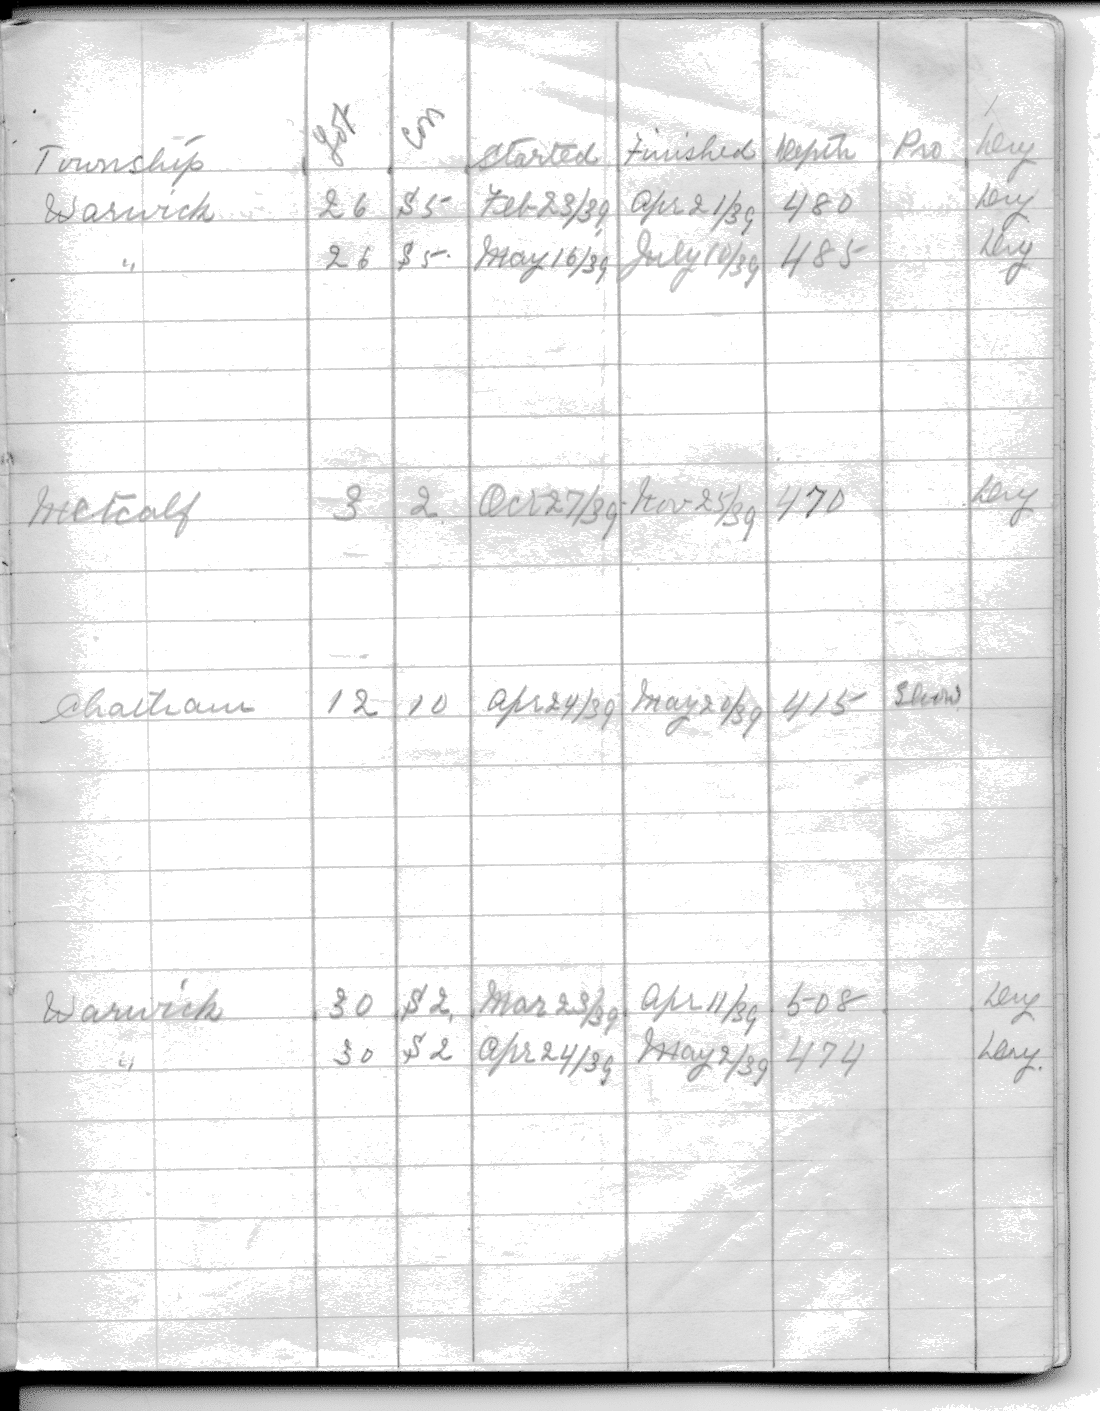 Township Lot Con Started Finished Depth Pro Dry
Warwick 26 S 5 Feb 23/39 Apr 21/39 480 Dry
" 26 S 5. May 16/39 July 10/39 485 Dry
Metcalf 3 2 Oct 27/39 Nov 25/39 470 Dry
Chatham 12 10 Apr 24/39 May 20/39 415 Show
Warwick 30 S 2, Mar 23/39 Apr 11/39 508 Dry
" 30 S 2 Apr 24/39 May 2/39 474 Dry.